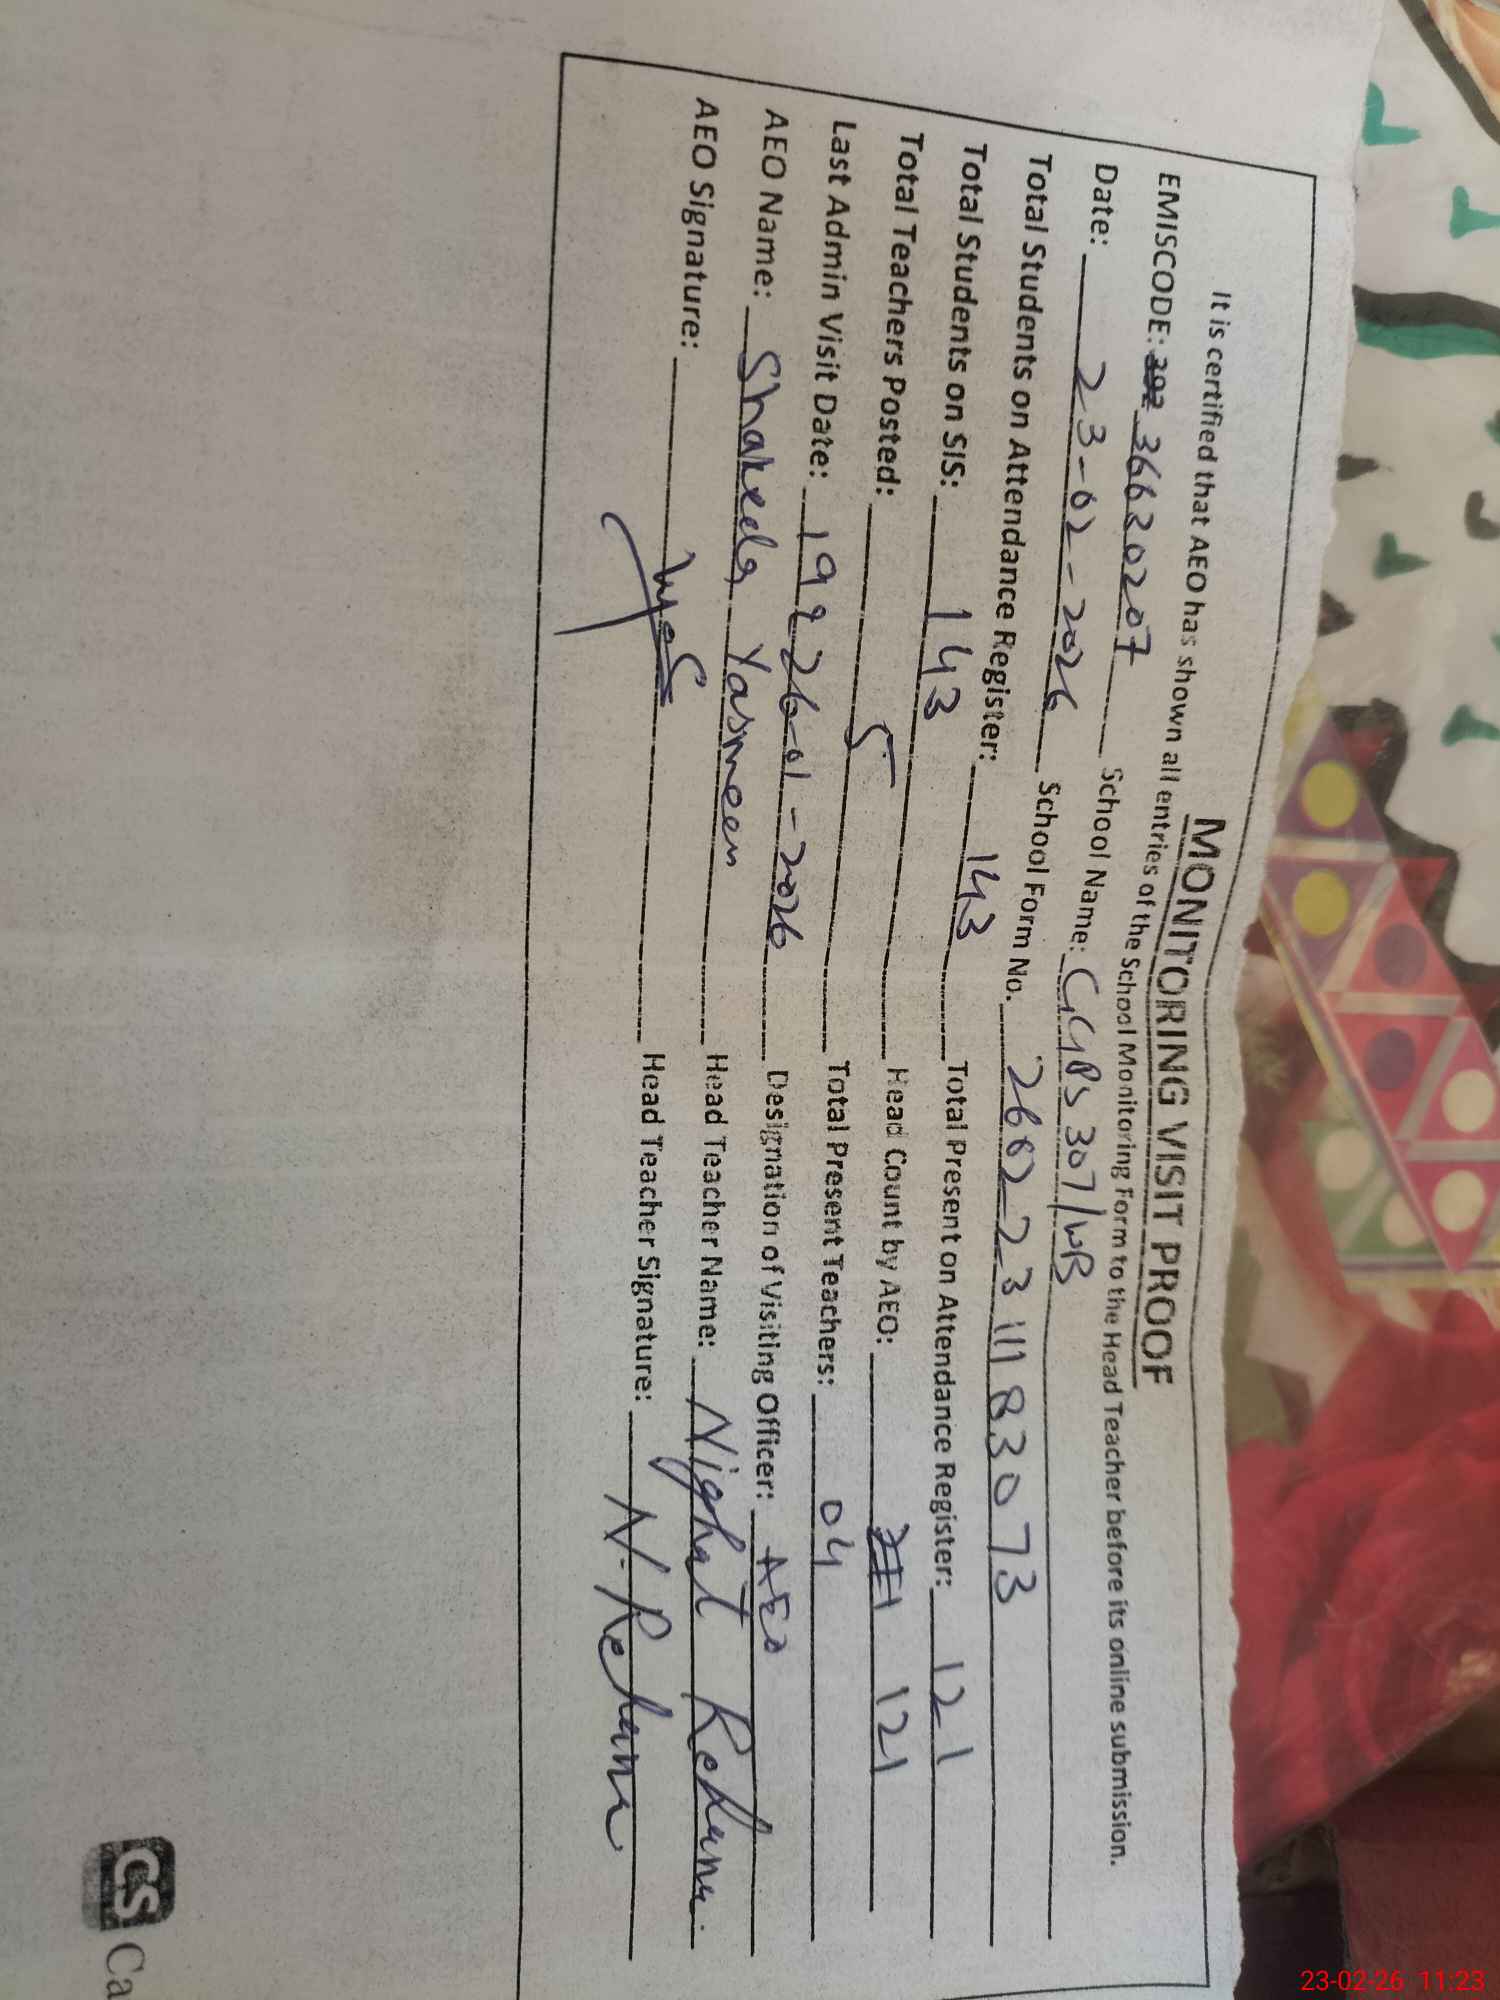 MONITORING VISIT PROOF
It is certified that AEO has shown all entries of the School Monitoring Form to the Head Teacher before its online submission.
EMISCODE: 36630207 School Name: GGPS 307/WB
Date: 23-02-2026 School Form No. 2602231183073
Total Students on Attendance Register: 143 Total Present on Attendance Register: 121
Total Students on SIS: 143 Head Count by AEO: 121
Total Teachers Posted: 5 Total Present Teachers: 04
Last Admin Visit Date: 26-01-2026 Designation of Visiting Officer: AEO
AEO Name: Shakeela Yasmeen Head Teacher Name: Nighat Rehana
AEO Signature: Head Teacher Signature: N. Rehana
CS Ca
23-02-26 11:23